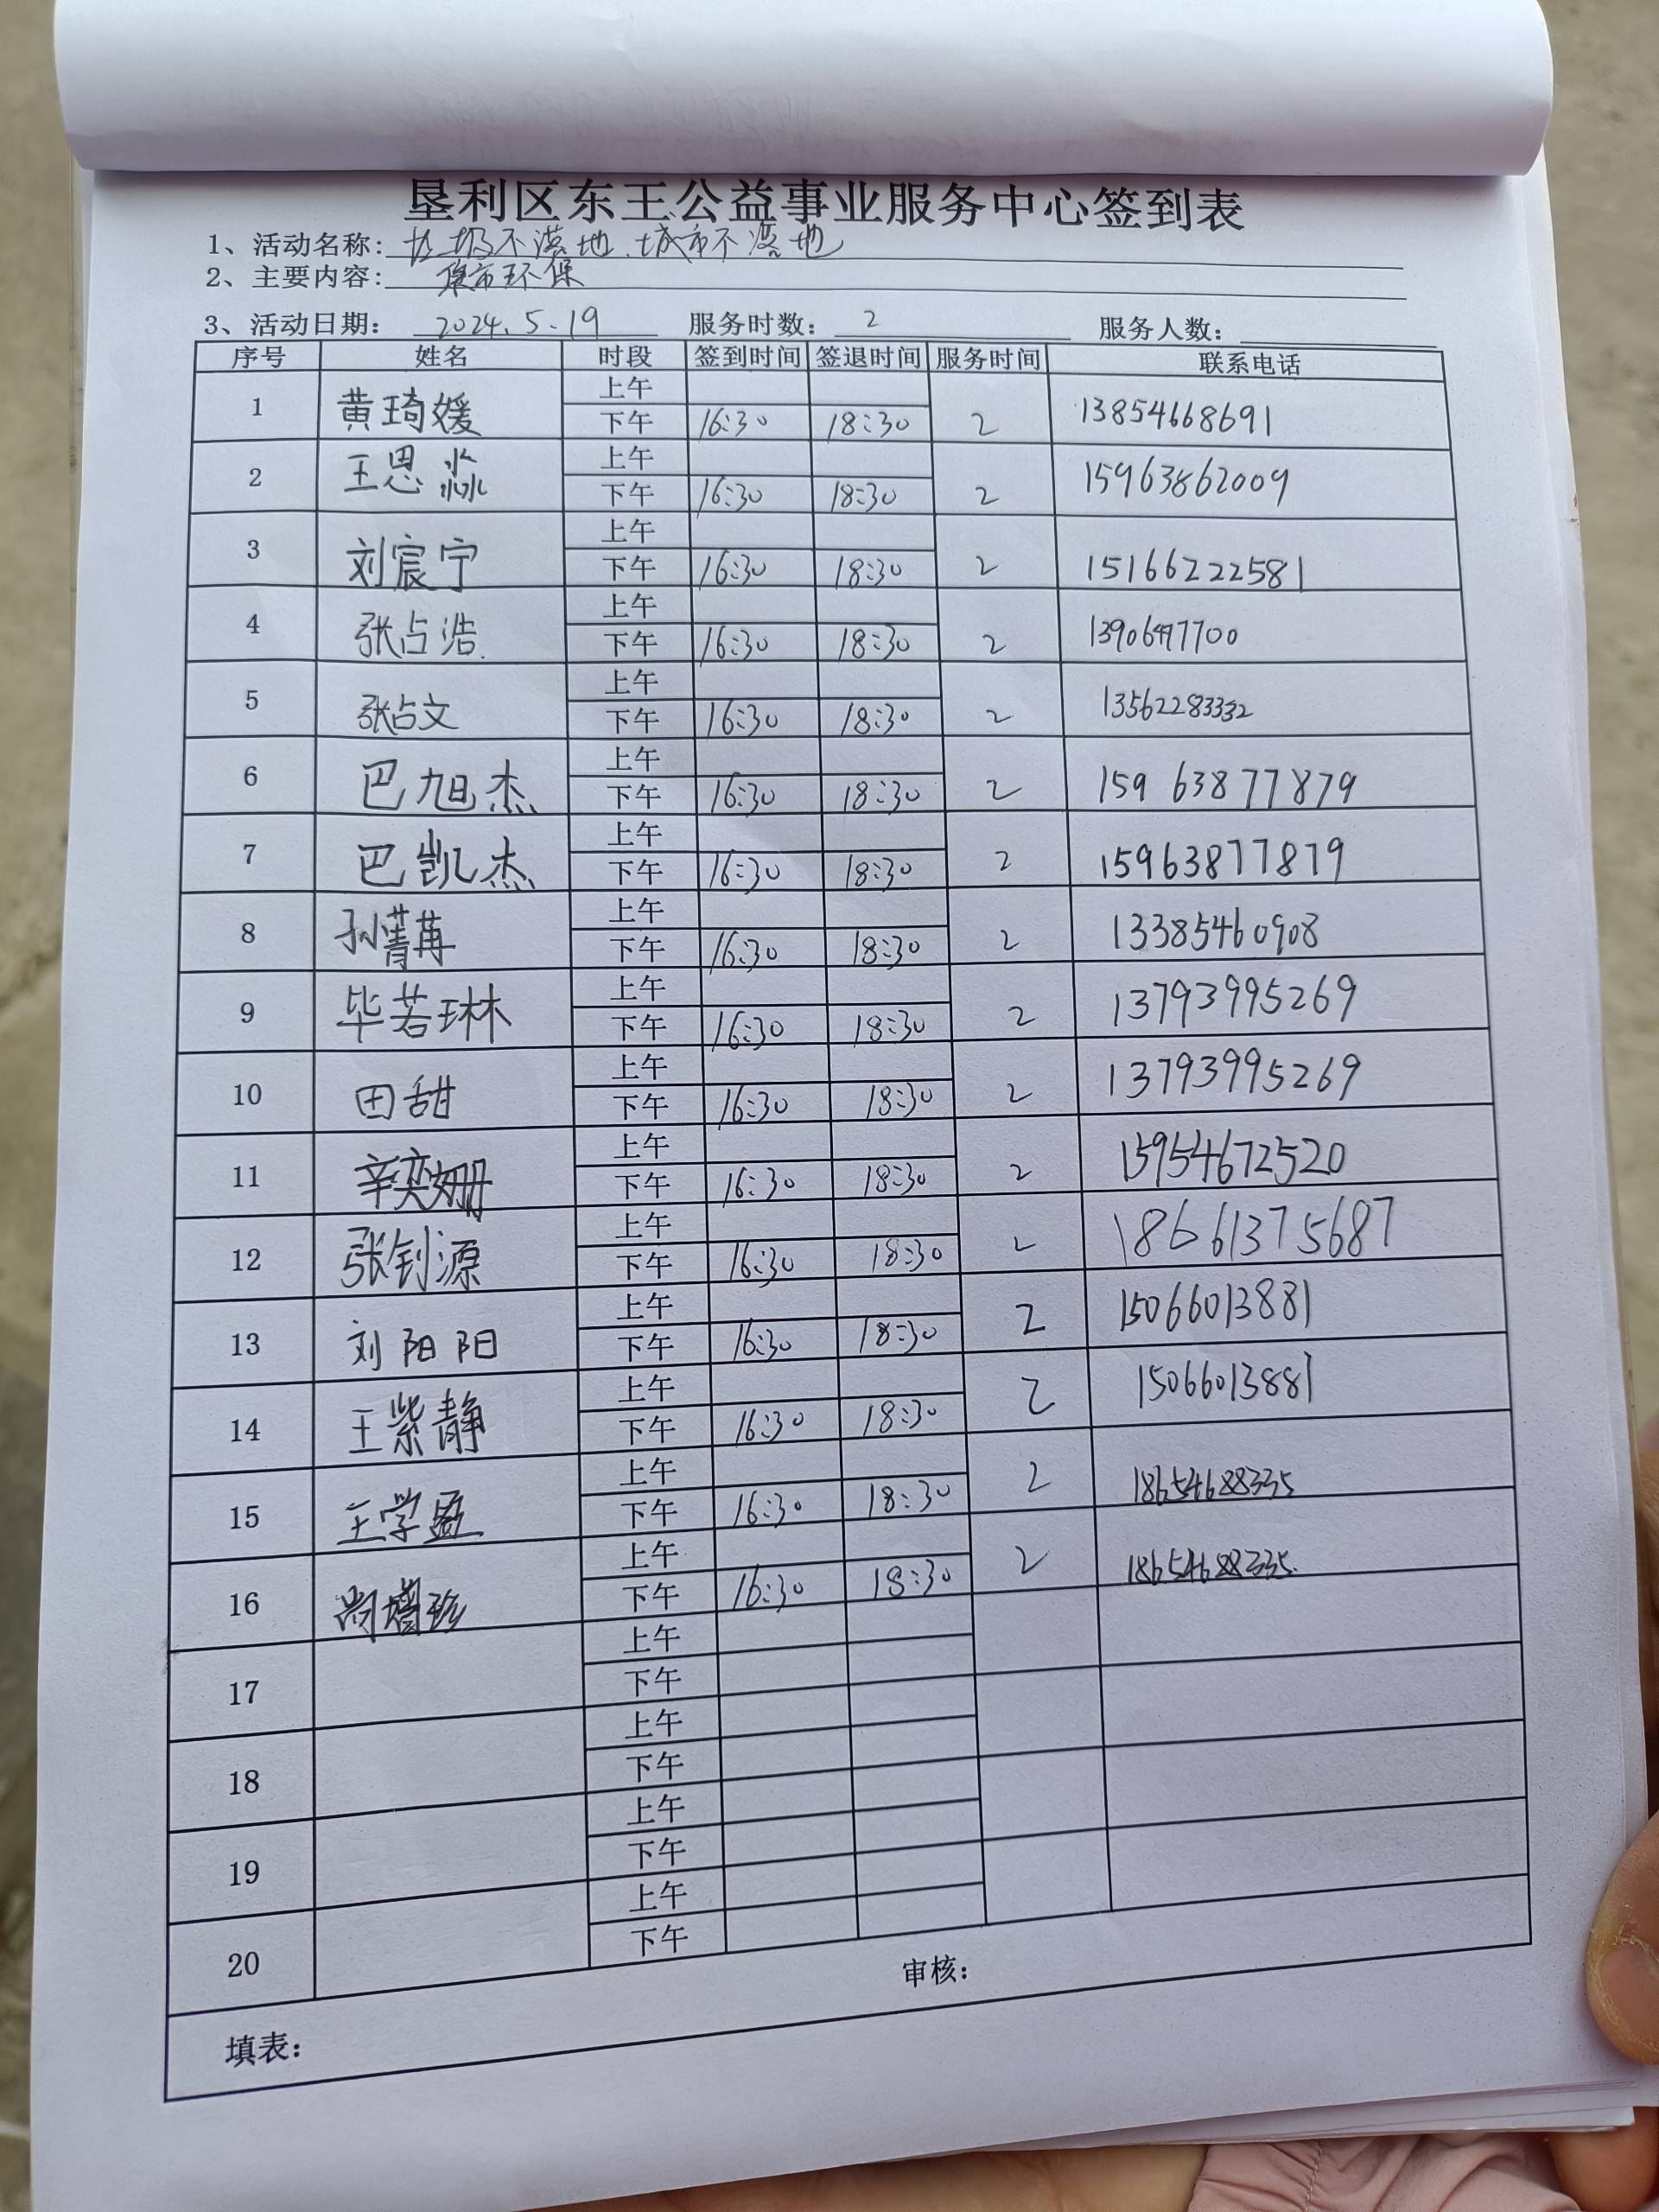 垦利区东王公益事业服务中心签到表
1、活动名称: 垃圾不落地.城市不落地
2、主要内容: 集市环保
3、活动日期: 2024.5.19 服务时数: 2 服务人数:
序号 姓名 时段 签到时间 签退时间 服务时间 联系电话
1 黄琦媛 上午
下午 16:30 18:30 2 13854668691
2 王思淼 上午
下午 16:30 18:30 2 15963862009
3 刘宸宁 上午
下午 16:30 18:30 2 15166222581
4 张占浩 上午
下午 16:30 18:30 2
5 张占文 上午
下午 16:30 18:30 2 13562283332
6 巴旭杰 上午
下午 16:30 18:30 2 159 63877879
7 巴凯杰 上午
下午 16:30 18:30 2 15963877879
8 孙菁苒 上午
下午 16:30 18:30 2 13385460908
9 毕若琳 上午
下午 16:30 18:30 2 13793995269
10 田甜 上午
下午 16:30 18:30 2 13793995269
11 辛奕姗 上午
下午 16:30 18:30 2 15954672520
12 张钊源 上午
下午 16:30 18:30 2 18661375687
13 刘阳阳 上午
下午 16:30 18:30 2 15066013881
14 王紫静 上午
下午 16:30 18:30 2 15066013881
15 王学盈 上午
下午 16:30 18:30 2 18654688335
16 尚增珍 上午
下午 16:30 18:30 2 18654688335.
17 上午
下午
18 上午
下午
19 上午
下午
20 上午
下午
填表: 审核: